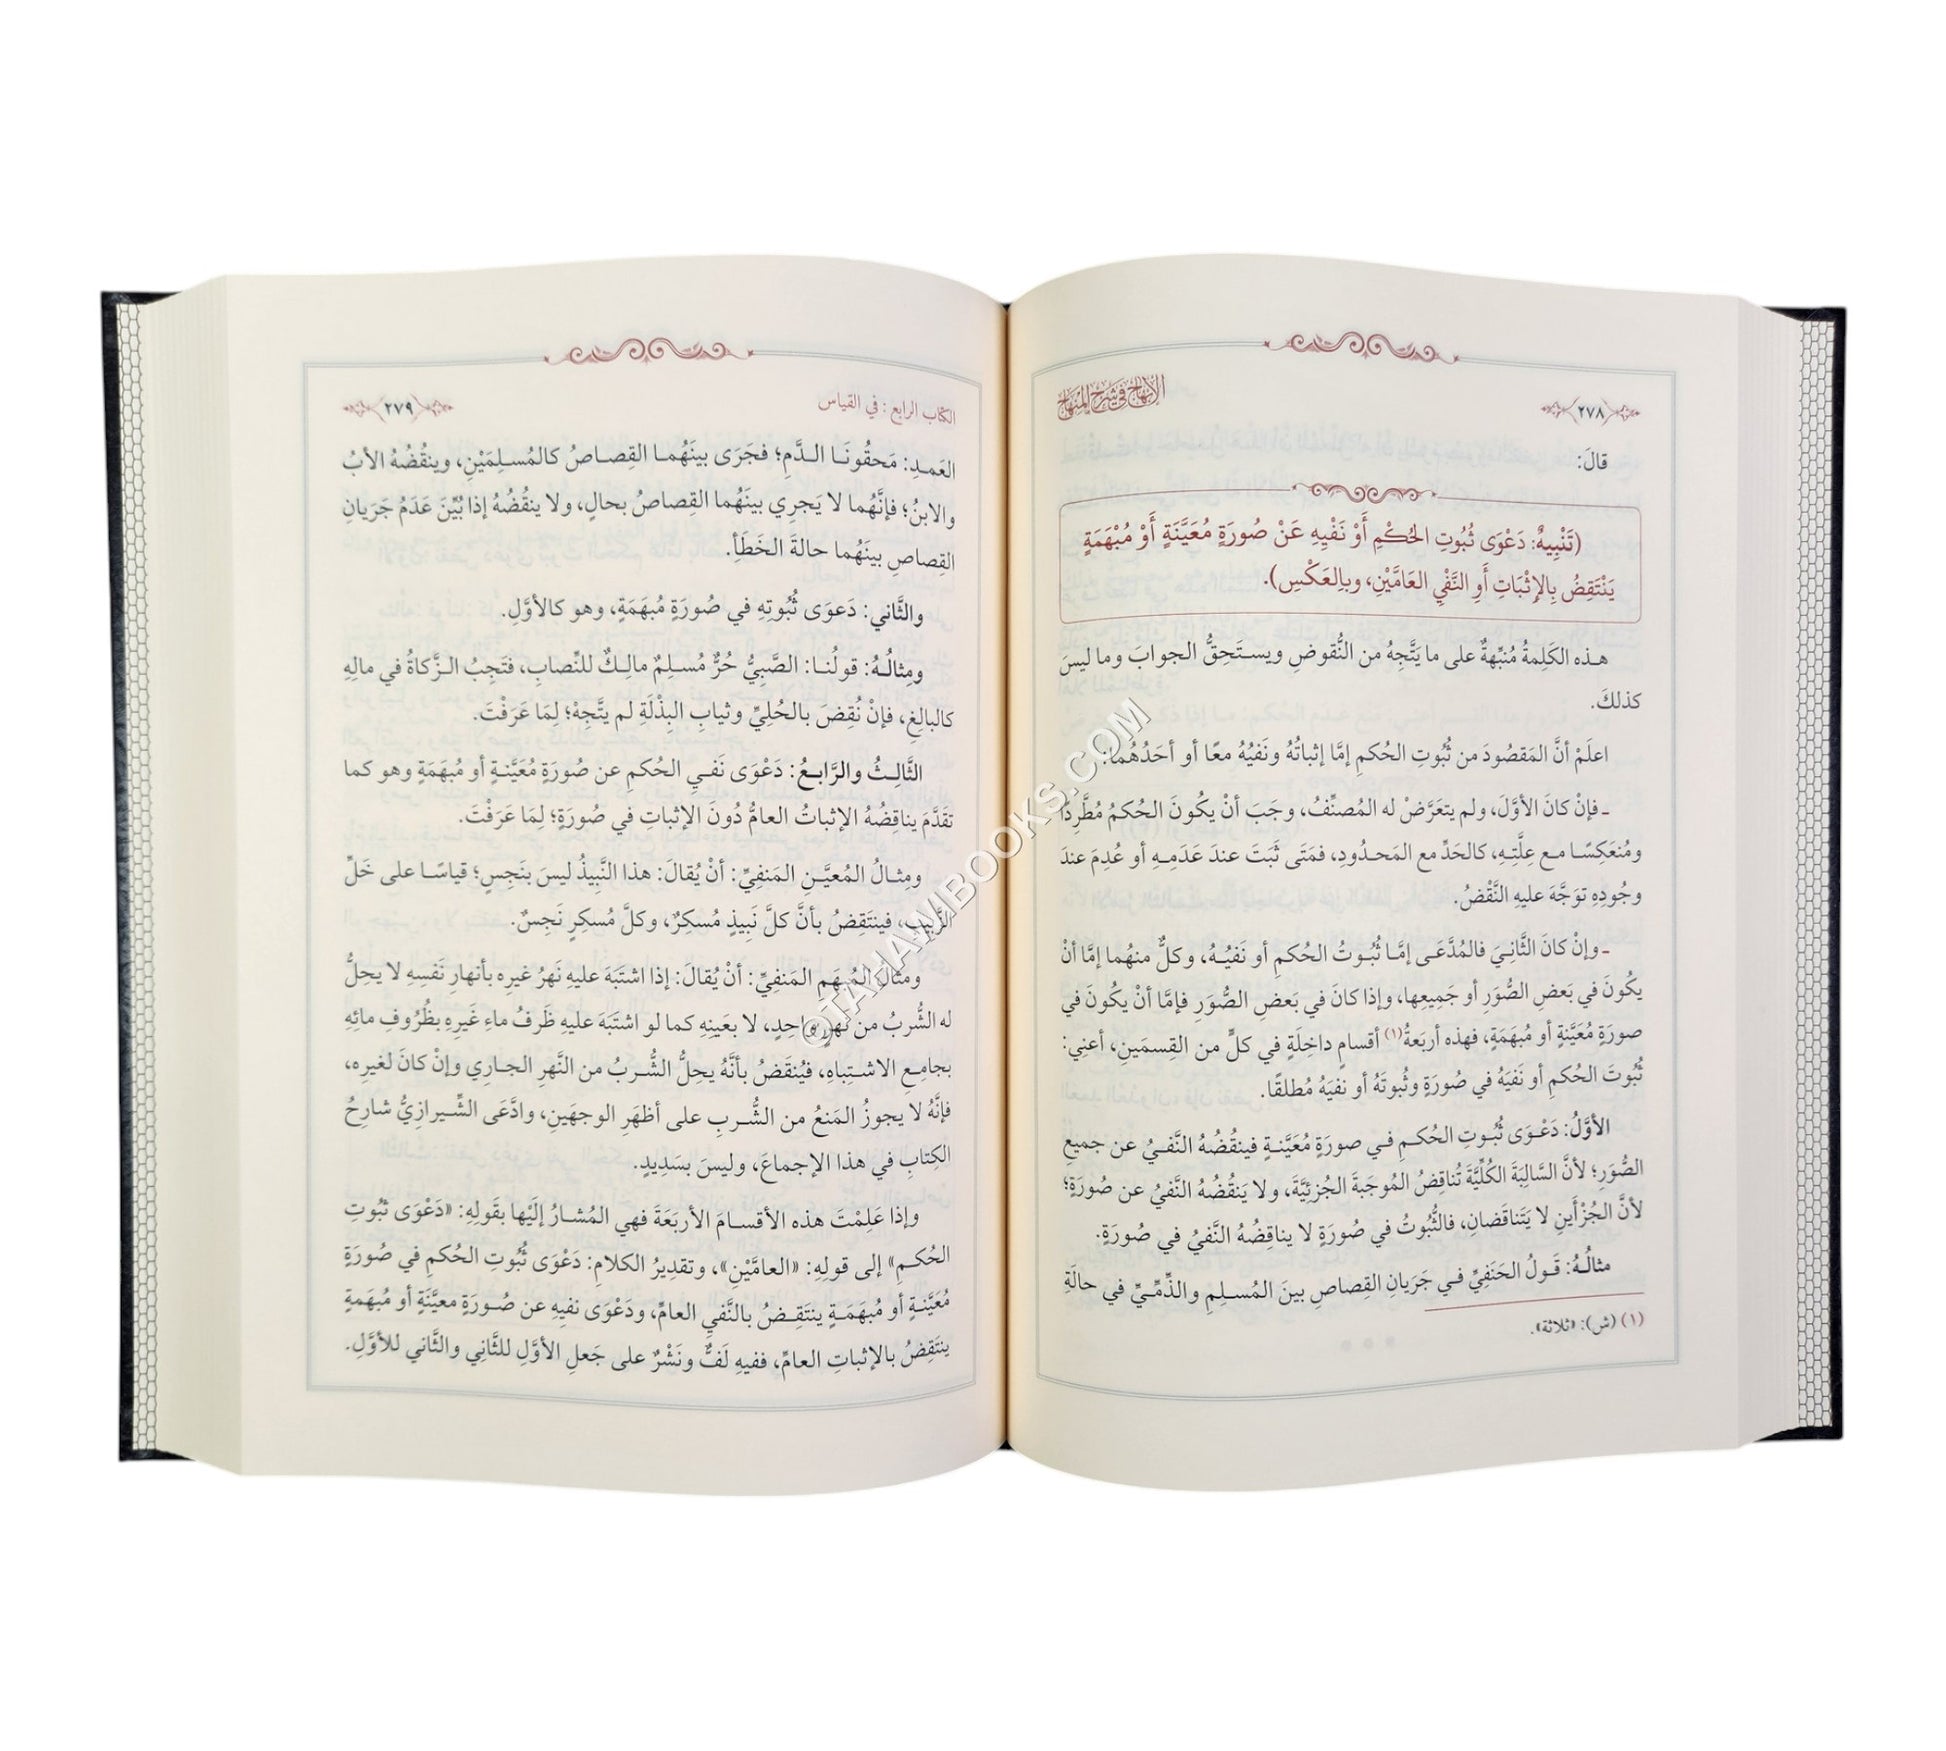 الإبهاج في شرح المنهاج
٢٧٨
قالَ:
(تَنْبِيهٌ: دَعْوَى ثُبُوتِ الحُكْمِ أَوْ نَفْيِهِ عَنْ صُورَةٍ مُعَيَّنَةٍ أَوْ مُبْهَمَةٍ
يَنْتَقِضُ بِالإِثْبَاتِ أَوِ النَّفْيِ العَامَّيْنِ، وبالعَكْسِ).
هذه الكَلِمةُ مُنبِّهةٌ على ما يَتَّجِهُ من النُّقوضِ ويستَحِقُّ الجوابَ وما ليسَ
كذلكَ.
اعلَمْ أنَّ المَقصُودَ من ثُبُوتِ الحُكمِ إمَّا إثباتُهُ ونَفيُهُ معًا أو أحَدُهُما:
ـ فإنْ كانَ الأوَّلَ، ولم يتعَرَّضْ له المُصنِّفُ، وجَبَ أنْ يكُونَ الحُكمُ مُطَّرِدًا
ومُنعَكِسًا مع عِلَّتِهِ، كالحَدِّ مع المَحدُودِ، فمَتَى ثَبَتَ عندَ عَدَمِهِ أو عُدِمَ عندَ
وجُودِهِ توَجَّهَ عليهِ النَّقْضُ.
ـ وإنْ كانَ الثَّانِيَ فالمُدَّعَى إمَّا ثُبُوتُ الحُكمِ أو نَفيُهُ، وكلٌّ منهُما إمَّا أنْ
يكُونَ في بَعضِ الصُّوَرِ أو جَمِيعِها، وإذا كانَ في بَعضِ الصُّوَرِ فإمَّا أنْ يكُونَ في
صورَةٍ مُعَيَّنَةٍ أو مُبهَمَةٍ، فهذه أربَعةُ(١) أقسامٍ داخِلَةٍ في كلٍّ من القِسمَينِ، أعنِي:
ثُبُوتَ الحُكمِ أو نَفيَهُ في صُورَةٍ وثُبوتَهُ أو نفيَهُ مُطلقًا.
الأوَّلُ: دَعْوَى ثُبُوتِ الحُكمِ في صورَةٍ مُعَيَّنةٍ فينقُضُهُ النَّفيُ عن جميعِ
الصُّوَرِ؛ لأنَّ السَّالِبَةَ الكُلِّيَّةَ تُناقِضُ المُوجَبةَ الجُزئِيَّةَ، ولا يَنقُضُهُ النَّفيُ عن صُورَةٍ؛
لأنَّ الجُزْأَينِ لا يَتَناقَضانِ، فالثُّبُوتُ في صُورَةٍ لا يناقِضُهُ النَّفيُ في صُورَةٍ.
مثالُهُ: قَولُ الحَنَفِيِّ في جَرَيانِ القِصاصِ بينَ المُسلِمِ والذِّمِّيِّ في حالَةِ
(١) (ش): «ثلاثة».
الكتاب الرابع: في القياس
٢٧٩
العَمدِ: مَحقُونَا الدَّمِ؛ فجَرَى بينَهُما القِصاصُ كالمُسلِمَيْنِ، وينقُضُهُ الأبُ
والابنُ؛ فإنَّهُما لا يَجرِي بينَهُما القِصاصُ بحالٍ، ولا ينقُضُهُ إذا بُيِّنَ عَدَمُ جَرَيانِ
القِصاصِ بينَهُما حالةَ الخَطَأِ.
والثَّاني: دَعوَى ثُبُوتِهِ في صُورَةٍ مُبهَمَةٍ، وهو كالأوَّلِ.
ومِثالُهُ: قولُنا: الصَّبِيُّ حُرٌّ مُسلِمٌ مالِكٌ للنِّصابِ، فتَجِبُ الزَّكاةُ في مالِهِ
كالبالِغِ، فإنْ نُقِضَ بالحُلِيِّ وثيابِ البِذْلَةِ لم يتَّجِهْ؛ لِمَا عَرَفْتَ.
الثَّالِثُ والرَّابعُ: دَعْوَى نَفيِ الحُكمِ عن صُورَةٍ مُعَيَّنةٍ أو مُبهَمَةٍ وهو كما
تقَدَّمَ يناقِضُهُ الإثباتُ العامُّ دُونَ الإثباتِ في صُورَةٍ؛ لِمَا عَرَفْتَ.
ومِثالُ المُعيَّنِ المَنفِيِّ: أنْ يُقالَ: هذا النَّبِيذُ ليسَ بنَجِسٍ؛ قياسًا على خَلِّ
الزَّبِيبِ، فينتَقِضُ بأنَّ كلَّ نَبِيذٍ مُسكِرٌ، وكلَّ مُسكِرٍ نَجِسٌ.
ومثالُ المُبهَمِ المَنفِيِّ: أنْ يُقالَ: إذا اشتَبَهَ عليهِ نَهرُ غيرِه بأنهارِ نَفسِهِ لا يحِلُّ
له الشُّربُ من نَهرٍ واحِدٍ، لا بعَينِهِ كما لو اشتَبَهَ عليهِ ظَرفُ ماءِ غَيرِهِ بظُروفِ مائِهِ
بجامِعِ الاشتِباهِ، فيُنقَضُ بأنَّهُ يحِلُّ الشُّربُ من النَّهرِ الجاري وإنْ كانَ لغيرِه،
فإنَّهُ لا يجوزُ المَنعُ من الشُّربِ على أظهَرِ الوجهَينِ، وادَّعَى الشِّيرازِيُّ شارِحُ
الكِتابِ في هذا الإجماعَ، وليسَ بسَدِيدٍ.
وإذا عَلِمْتَ هذه الأقسامَ الأربَعَةَ فهي المُشارُ إلَيْها بقَولِهِ: «دَعْوَى ثبُوتِ
الحُكمِ» إلى قولِهِ: «العامَّيْنِ»، وتقدِيرُ الكلامِ: دَعْوَى ثبُوتِ الحُكمِ في صُورَةٍ
مُعَيَّنةٍ أو مُبهَمَةٍ ينتَقِضُ بالنَّفيِ العامِّ، ودَعْوَى نفيِهِ عن صُورَةٍ معيَّنَةٍ أو مُبهَمةٍ
ينتَقِضُ بالإثباتِ العامِّ، ففيهِ لَفٌّ ونَشْرٌ على جَعلِ الأوَّلِ للثَّانِي والثَّاني للأوَّلِ.
©TAHAWIBOOKS.COM